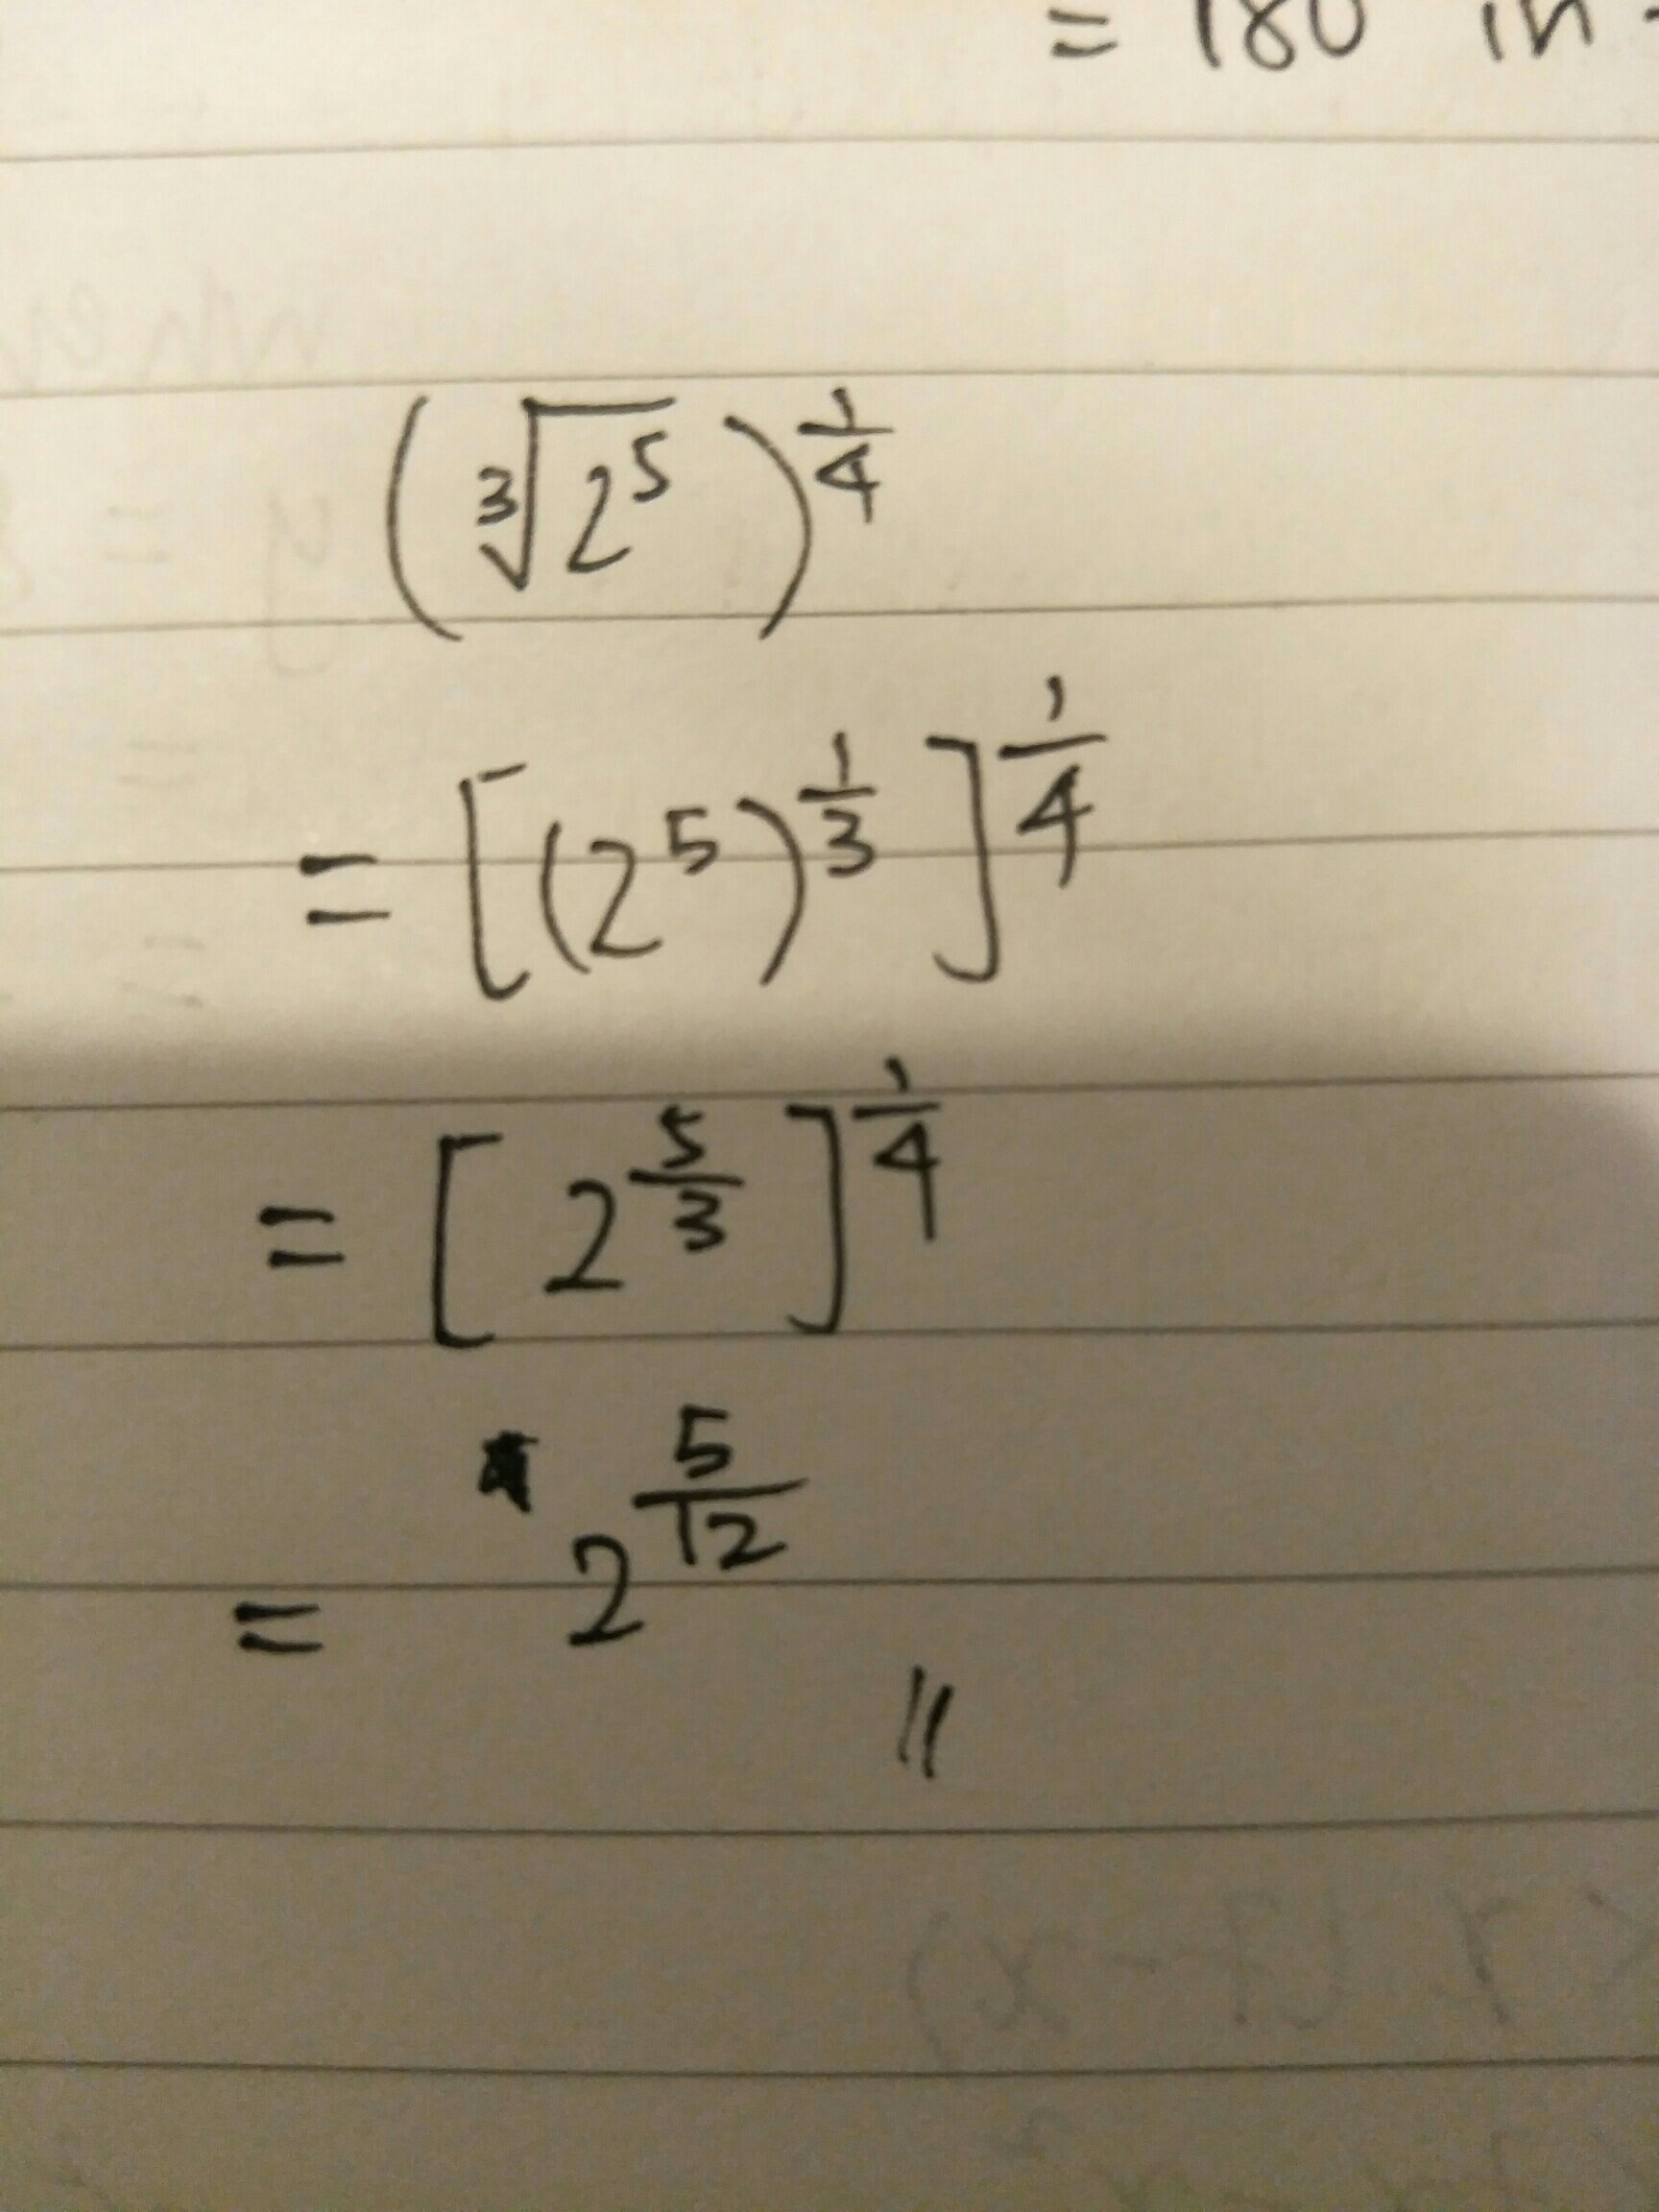 = 180 in
(∛2⁵)^(1/4)
= [(2⁵)^(1/3)]^(1/4)
= [2^(5/3)]^(1/4)
= 2^(5/12) //